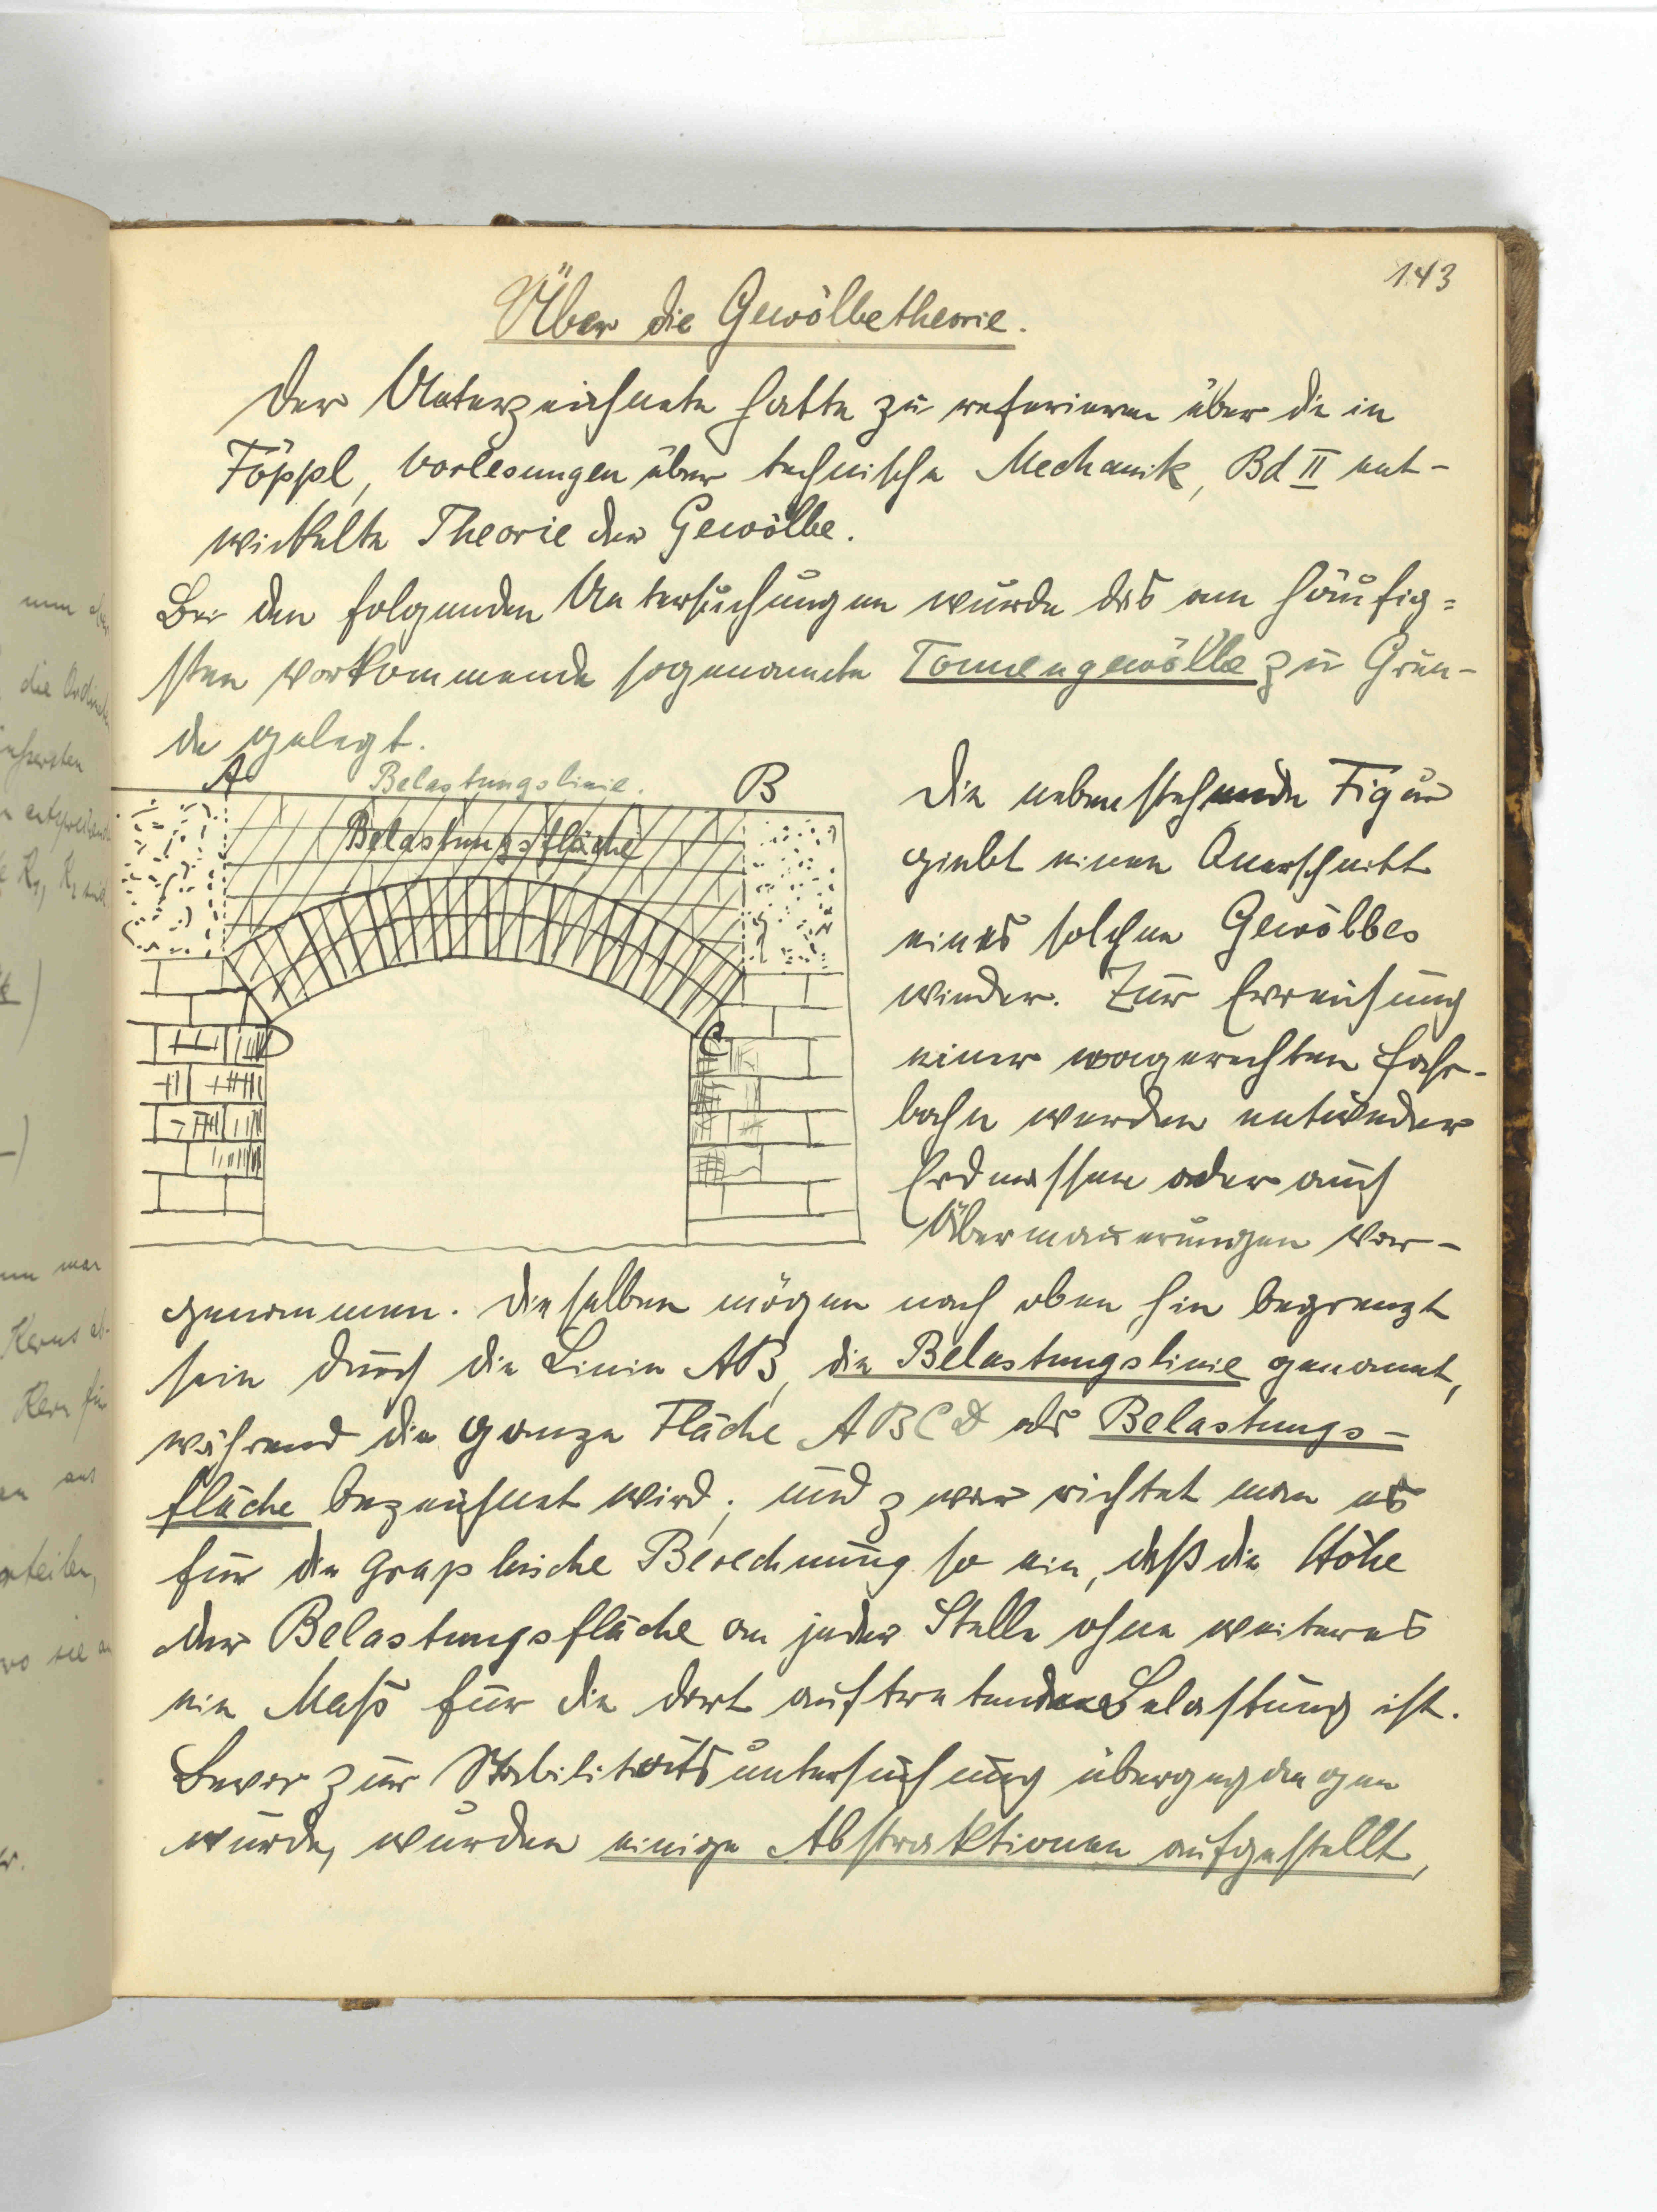 143
Über die Gewölbetheorie.
Der Unterzeichnete hatte zu referieren über die in
Föppl, Vorlesungen über technische Mechanik, Bd II ent-
wickelte Theorie der Gewölbe.
Bei den folgenden Untersuchungen wurde das am häufig=
sten vorkommende sogenannte Tonnengewölbe zu Grun-
de gelegt.
A Belastungslinie. B
Belastungsfläche
D C
Die nebenstehende Figur
giebt einen Querschnitt
eines solchen Gewölbes
wieder. Zur Erreichung
einer wagerechten Fahr-
bahn werden entweder
Erdmassen oder auch
Übermauerungen vor-
genommen. Dieselben mögen nach oben hin begrenzt
sein durch die Linie AB, die Belastungslinie genannt,
während die ganze Fläche ABCD als Belastungs-
fläche bezeichnet wird; und zwar richtet man es
für die graphische Berechnung so ein, daß die Höhe
der Belastungsfläche an jeder Stelle ohne weiteres
ein Maß für die dort auftretende Belastung ist.
Bevor zur Stabilitätsuntersuchung übergegangen
wurde, wurden einige Abstraktionen aufgestellt,
nun
die Ordinaten
äussersten
K₁, K₂ sind
Kerns
Kern für
aus
wo sie